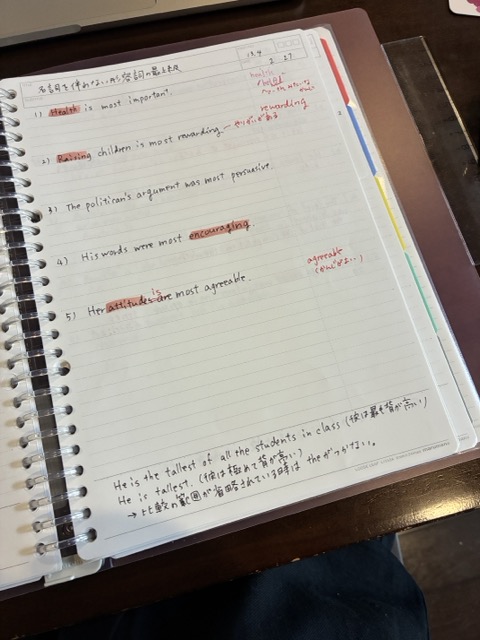 名詞を伴わない形容詞の最上級
13.4
2 27
health
1) Health is most important.
rewarding
2) Raising children is most rewarding. やりがいがある
3) The politican's argument was most persuasive.
4) His words were most encouraging.
agreeable
(かんじがよい)
is
5) Her attitudes are most agreeable.
He is the tallest of all the students in class (彼は最も背が高い)
He is tallest. (彼は極めて背が高い)
→ 比較の範囲が省略されている時は theがつかない。